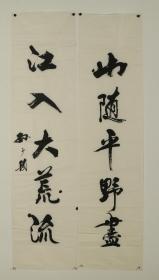 山随平野盡
江入大荒流